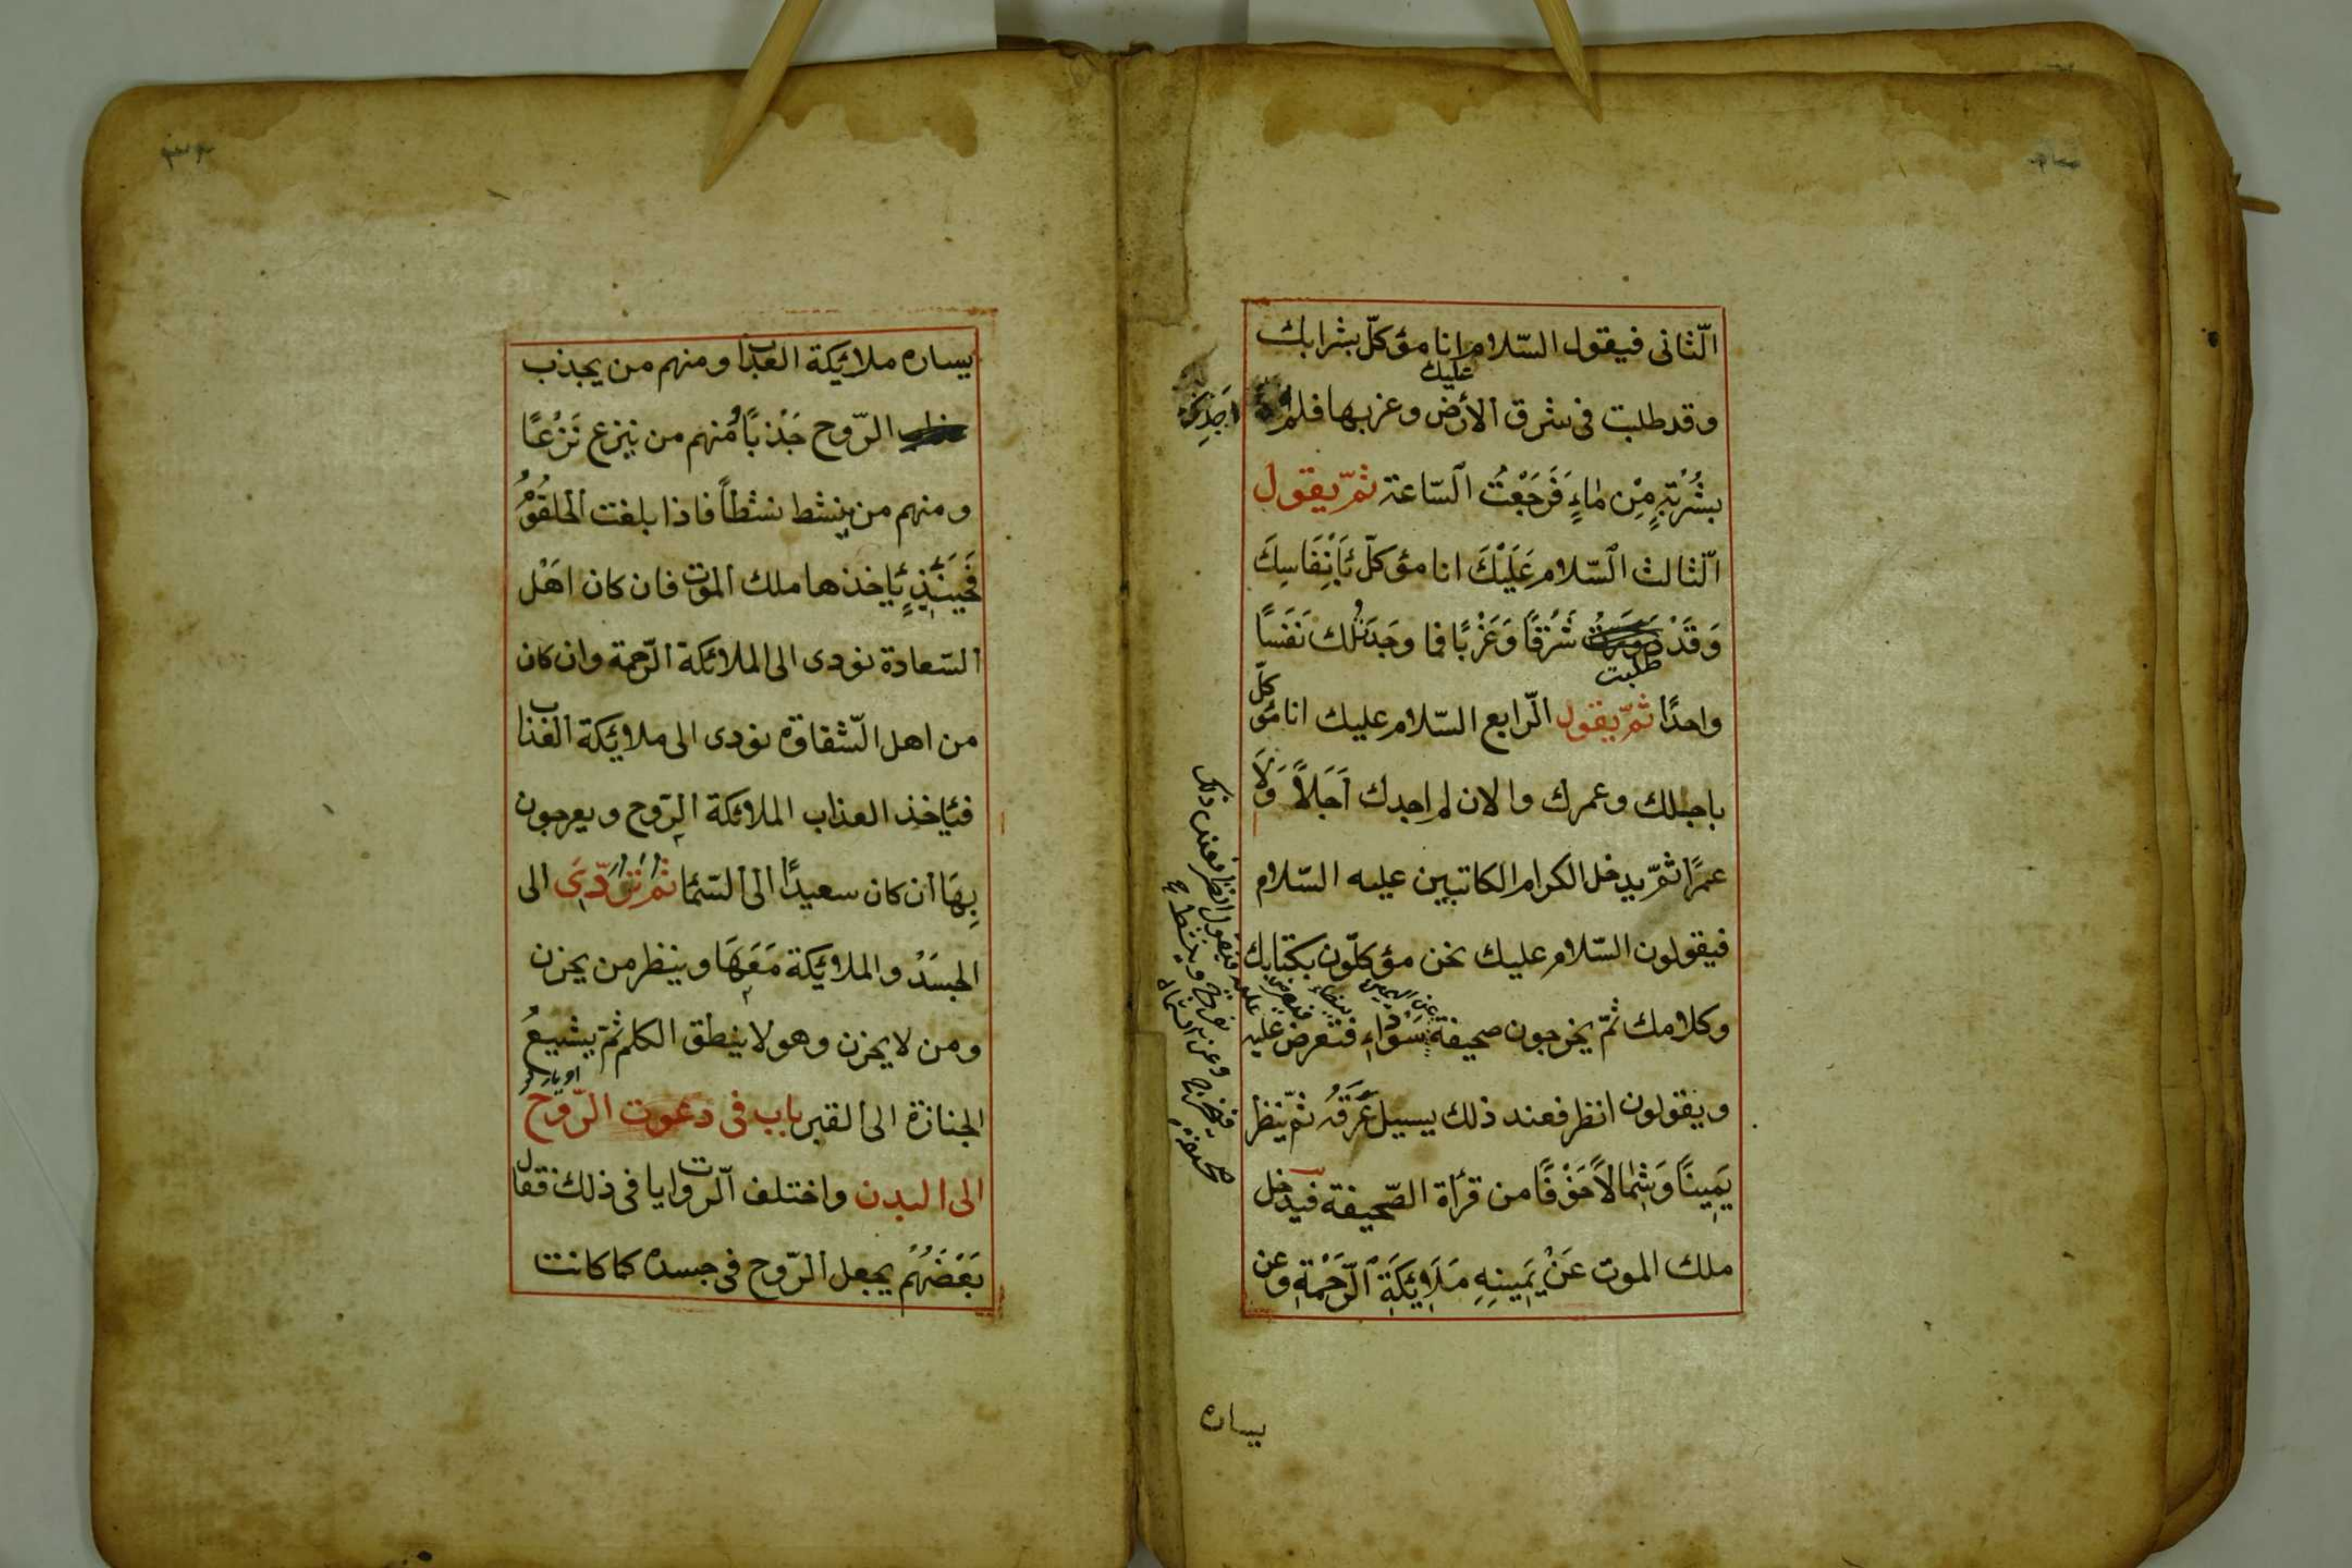 الّثانى فيقول السّلام عليك انا مؤكلّ بشرابك
وقد طلبت فى شرق الأرض وغربها فلم اجدك
بشُرْبَةٍ مِنْ مٰاءٍ فَرَجَعْتُ السّاعة ثمّ يقول
الّثالث السّلام عَلَيْكَ انا مؤكلّ بَاَنْفَاسِكَ
وَقَدْ طلبت شَرْقًا وَغَرْبًا فما وجدتُ لك نَفَسًا
واحدًا ثمّ يقول الّرابع السّلام عليك انا مؤكلّ
باجلك وعمرك والان لم اجدك اَجَلاً وَلَا
عمرًا ثمّ يدخل الكرام الكاتبين عليه السّلام
فيقولون السّلام عليك نحن مؤكلّون بكتابك
وكلامك ثمّ يخرجون صحيفة سَوْداء فتعرض عليه
ويقولون انظر فعند ذلك يسيل عَرَقُه ثمّ ينظر
يَمِينًا وَشِمٰالاً خَوْفًا من قرأة الصّحيفة فيدخل
ملك الموت عَنْ يَمِينِهِ مَلَايِكَةِ الّرَحْمَةِ وعن
يساره
يساره ملائكة العذاب ومنهم من يجذب
الرّوح جَذْبًا وَمنهم من ينزع نَزْعًا
ومنهم من ينشط نشْطاً فاذا بلغت الحلقُوْمُ
فَحِينَئِذٍ يَاخذها ملك الموت فان كان اهْل
السّعادة نودى الى الملائكة الرّحمة وان كان
من اهل الشّقاوة نودى الى ملائكة العذاب
فيَاخذ العذاب الملائكة الرّوح ويعرجون
بِهَا ان كان سعيدًا الى السّمٰا ثمّ نُوّدِىَ الى
الجسَدْ والملائكة مَعَهَا وينظر من يحزن
ومن لا يحزن وهو لا ينطق الكلم ثمّ يشيعُ
الجنازة الى القبر باب فى دعوت الرّوح
الى البدن واختلف الّروايات فى ذلك فقال
بَعْضَهُمْ يجعل الرّوح فى جسده كما كانت